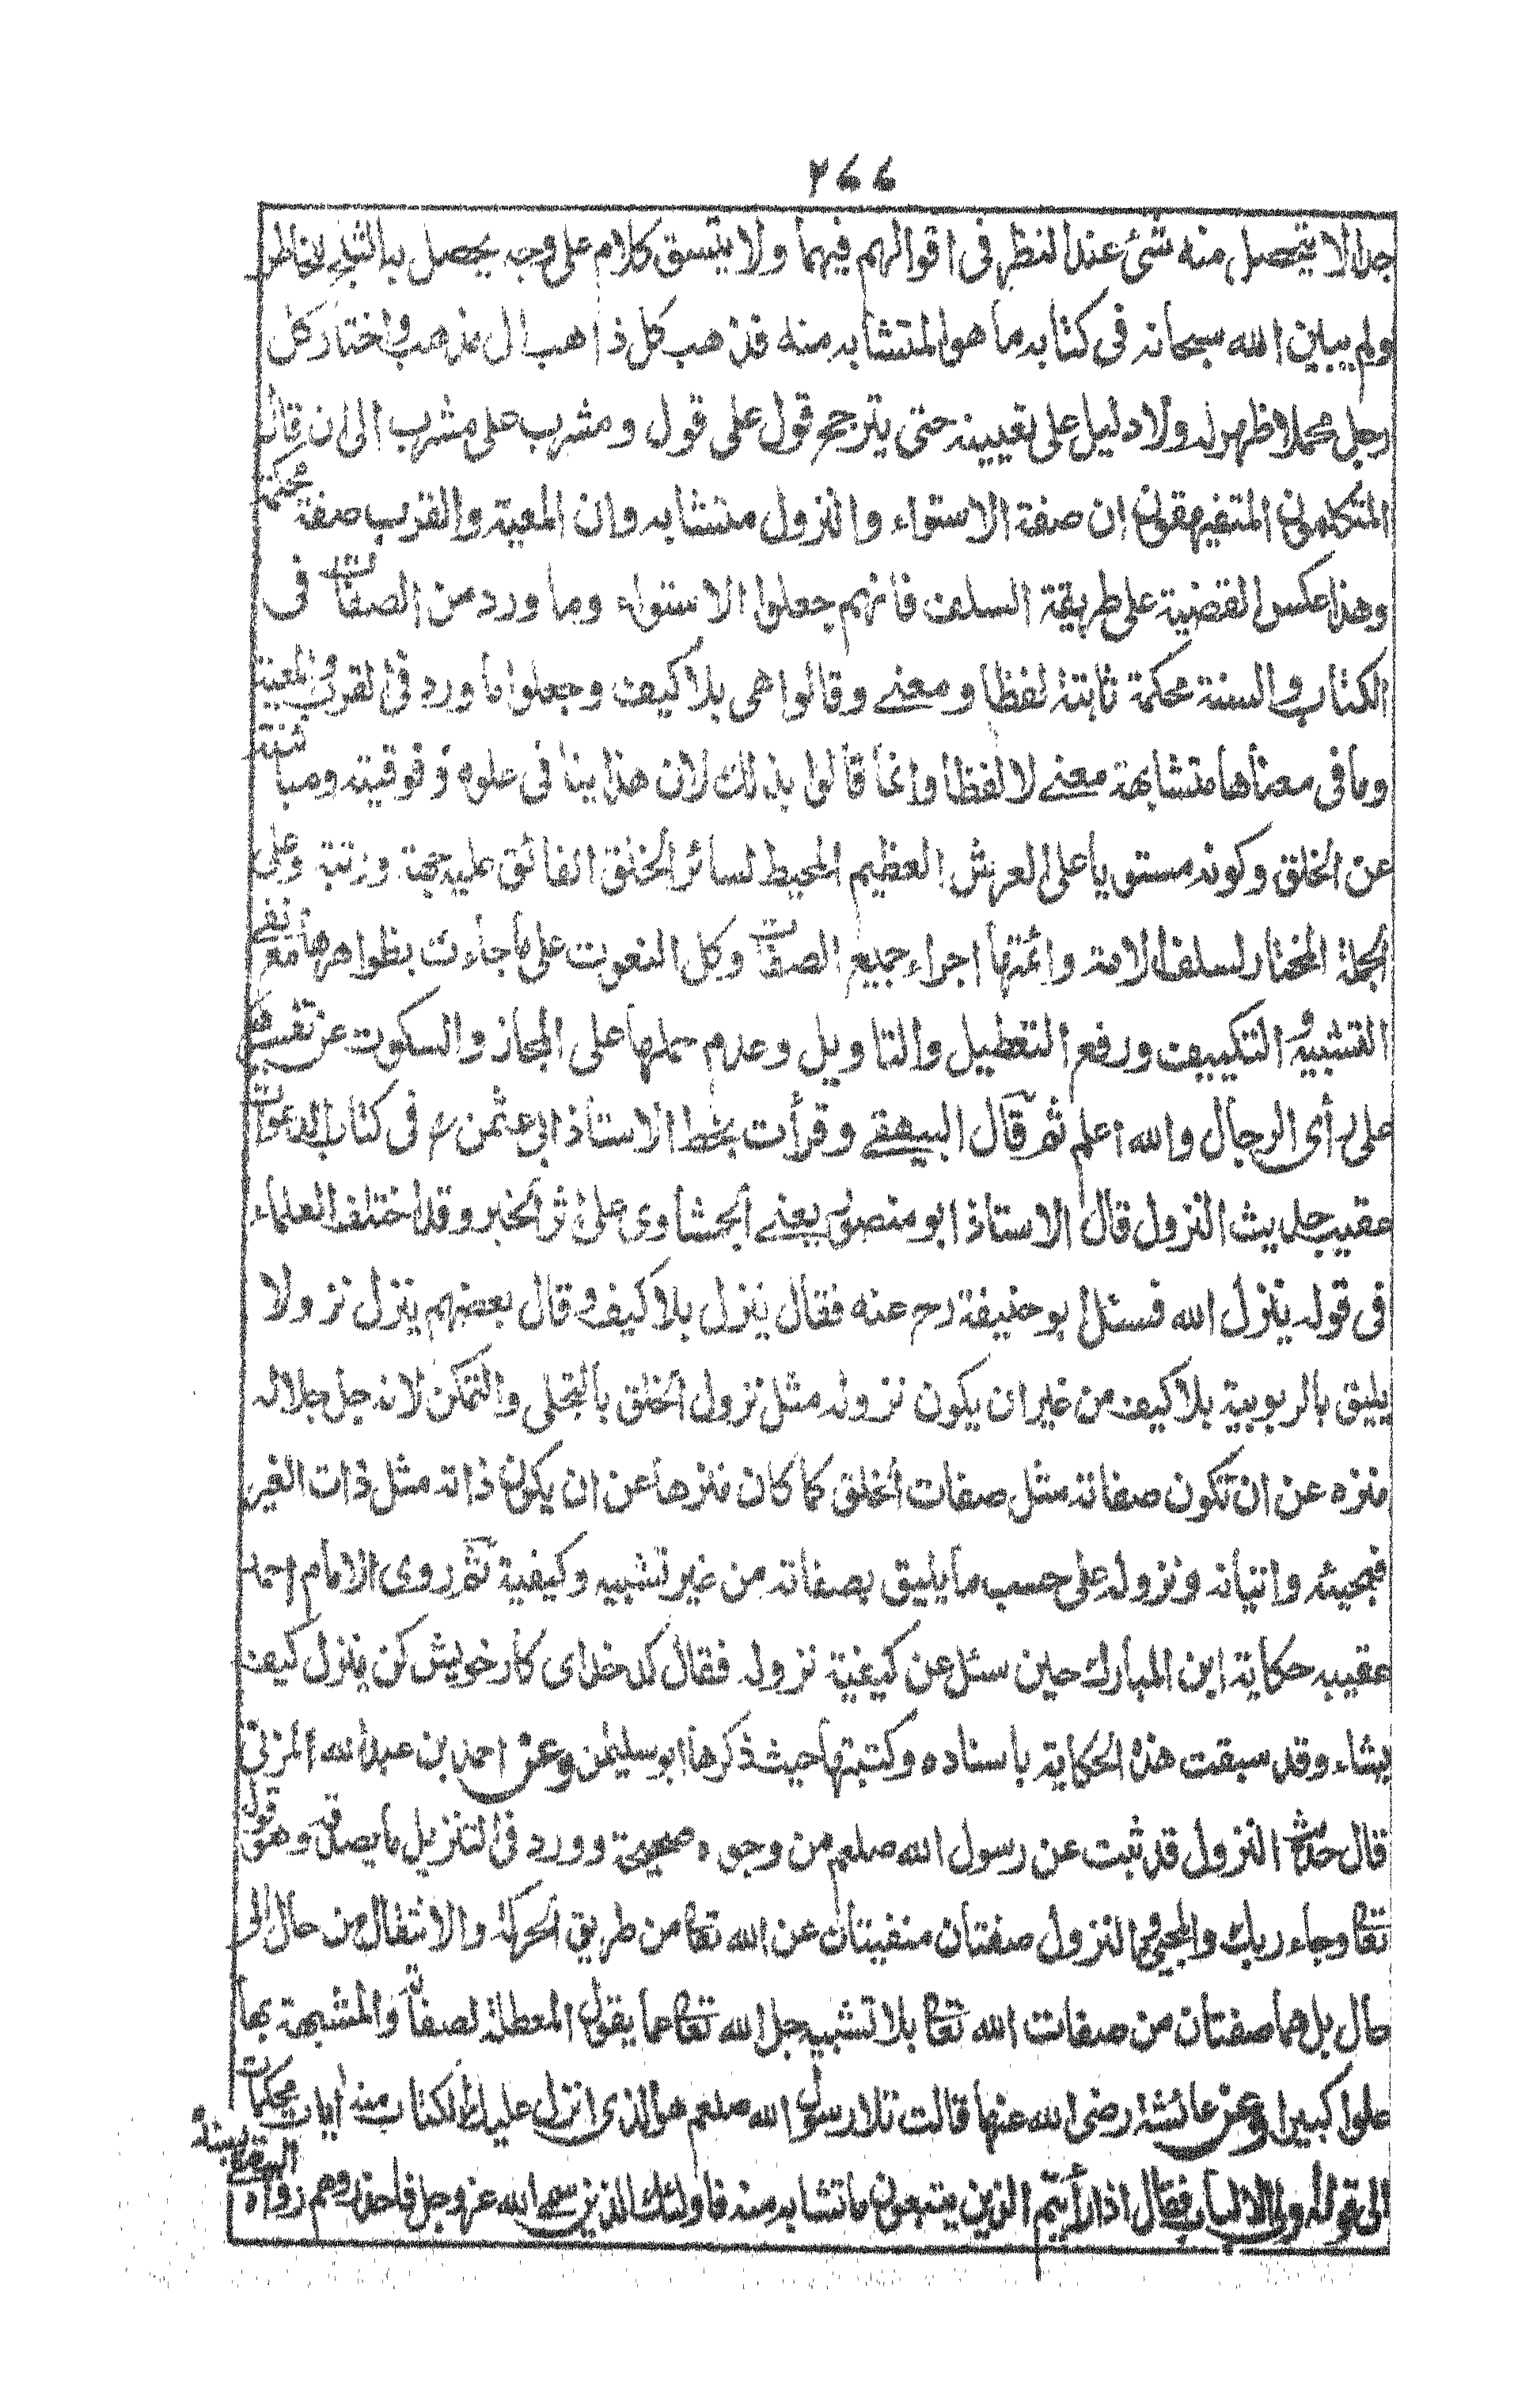 ۲۶۶
جدا لا يتحصل منه شئ عند النظر فى اقوالهم فيهما ولا يتسق كلام على وجه يحصل به الثلج للخاطر
ولم يبين الله سبحانه فى كتابه ما هو المتشابه منه فذهب كل ذاهب الى مذهب واختار كل
رجل محملا ظهر له ولا دليل على تعيينه حتى يترجح قول على قول ومشرب على مشرب الى ان قال
المتكلمون المتفيهقون ان صفة الاستواء والنزول متشابه وان المعية والقرب صفة محكمة
وهذا عكس القضية على طريقة السلف فانهم جعلوا الاستواء وما ورد من الصفات فى
الكتاب والسنة محكمة ثابتة لفظا ومعنے وقالوا هى بلا كيف وجعلوا ما ورد فى القرب والمعية
وما فى معناها متشابهة معنے لا لفظا وانما قالوا بذلك لان هذا ينا فى علوه وفوقيته ومباينته
عن الخلق وكونه مستويا على العرش العظيم المحيط لسائر الخلق الفائق عليه جهة ورتبة وعلى
الجملة المختار لسلف الامة وائمتها اجراء جميع الصفات وكل النعوت على ما جاءت بظواهرها مع نفے
التشبيه والتكييف ورفع التعطيل والتاويل وعدم حملها على المجاز والسكوت عن تفسيرها
على رأى الرجال والله اعلم ثم قال البيهقے وقرأت بخط الاستاذ ابى عثمن رح فى كتاب الدعوات
عقيب حديث النزول قال الاستاذ ابو منصور يعنے الحمشاوى على اثر الخبر وقد اختلف العلماء
فى قوله ينزل الله فسئل ابو حنيفة رح عنه فقال ينزل بلا كيف وقال بعضهم ينزل نزولا
يليق بالربوبية بلا كيف من غير ان يكون نزوله مثل نزول الخلق بالتجلى والتمكن لانه جل جلاله
منزه عن ان تكون صفاته مثل صفات الخلق كما كان منزها عن ان يكون ذاته مثل ذات الغير
فمجيئه واتيانه ونزوله على حسب ما يليق بصفاته من غير تشبيه وكيفية ثم روى الامام احمد
عقيبه حكاية ابن المبارك حين سئل عن كيفية نزوله فقال كدخداى كار خويش كن ينزل كيف
يشاء وقد سبقت هذه الحكاية باسناده وكتبتها حيث ذكرها ابو سليمن وعن احمد بن عبد الله المزنى
قال حديث النزول قد ثبت عن رسول الله صلعم من وجوه صحيحة وورد فى التنزيل ما يصدقه وهو قوله
تعا وجاء ربك والمجئ والنزول صفتان منفيتان عن الله تعا من طريق الحركة والانتقال من حال الى
حال بل هما صفتان من صفات الله تعا بلا تشبيه جل الله تعا عما يقول المعطلة لصفاته والمشبهة بها
علوا كبيرا وعن عائشة رضى الله عنها قالت تلا رسول الله صلعم هو الذى انزل عليك الكتاب منه ايات محكمات
الى قوله اولوا الالباب فقال اذا رأيتم الذين يتبعون ما تشابه منه فاولئك الذين سمى الله عز وجل فاحذروهم رواه
البيهقے بسنده